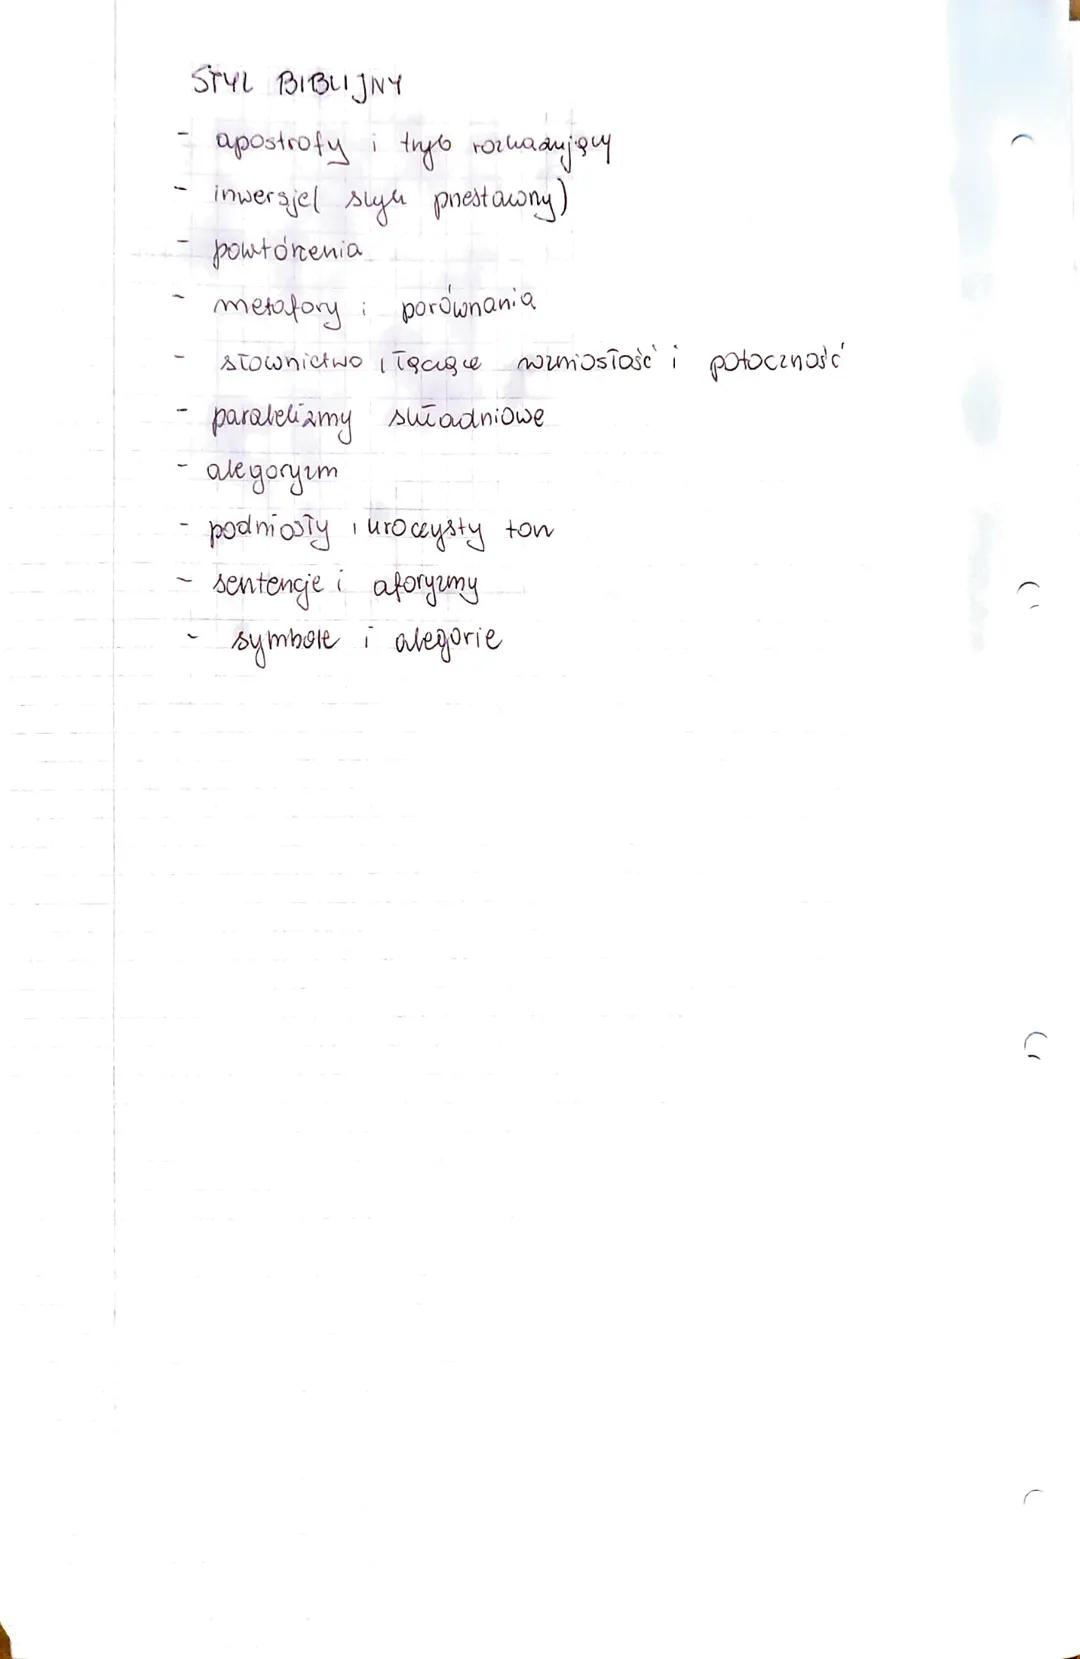 STYL BIBLIJNY
- apostrofy i tryb rozkazujący
- inwersje( szyk przestawny)
- powtórzenia
- metafory i porównania
- słownictwo , łączące wzniosłość i potoczność
- paralelizmy składniowe
- alegoryzm
- podniosły , uroczysty ton
- sentencje i aforyzmy
- symbole i alegorie